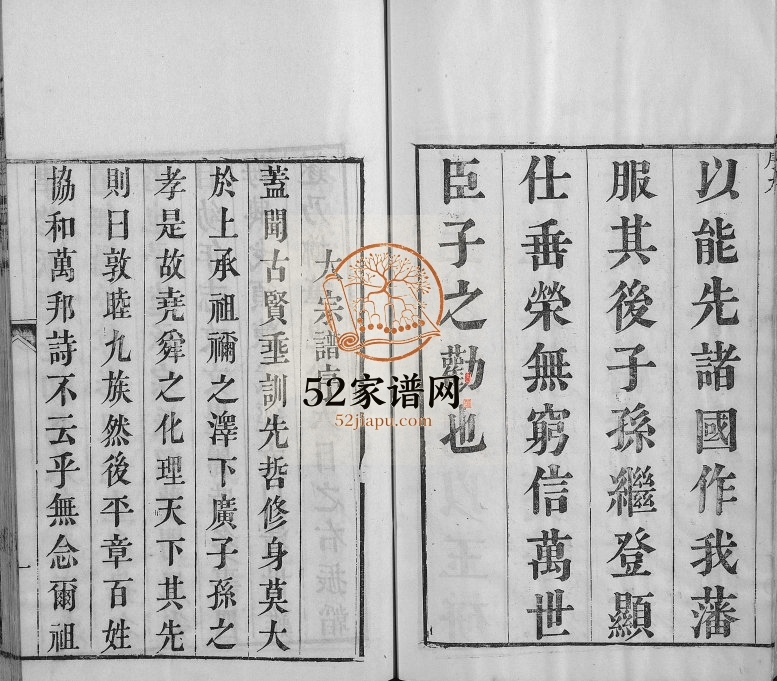 以能先諸國作我藩
服其後子孫繼登顯
仕垂榮無窮信萬世
臣子之勸也
大宗譜
蓋聞古賢垂訓先哲修身莫大
於上承祖禰之澤下廣子孫之
孝是故堯舜之化理天下其先
則曰敦睦九族然後平章百姓
協和萬邦詩不云乎無念爾祖
52家谱网
52jiapu.com